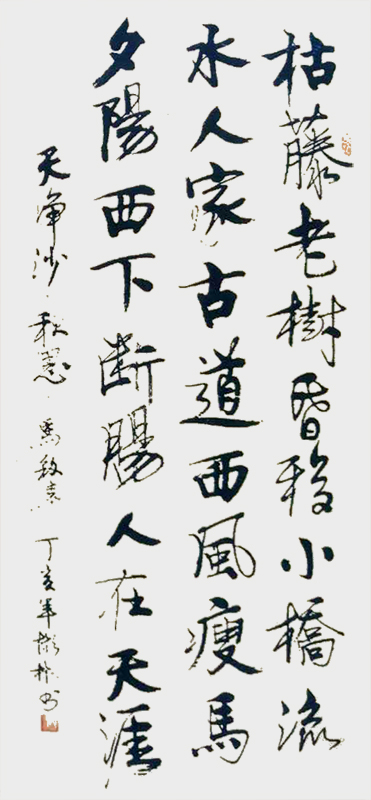 枯藤老樹昏小橋流
水人家古道西風瘦馬
夕陽西下斷腸人在天涯
天淨沙·秋思·馬致遠 丁亥年书